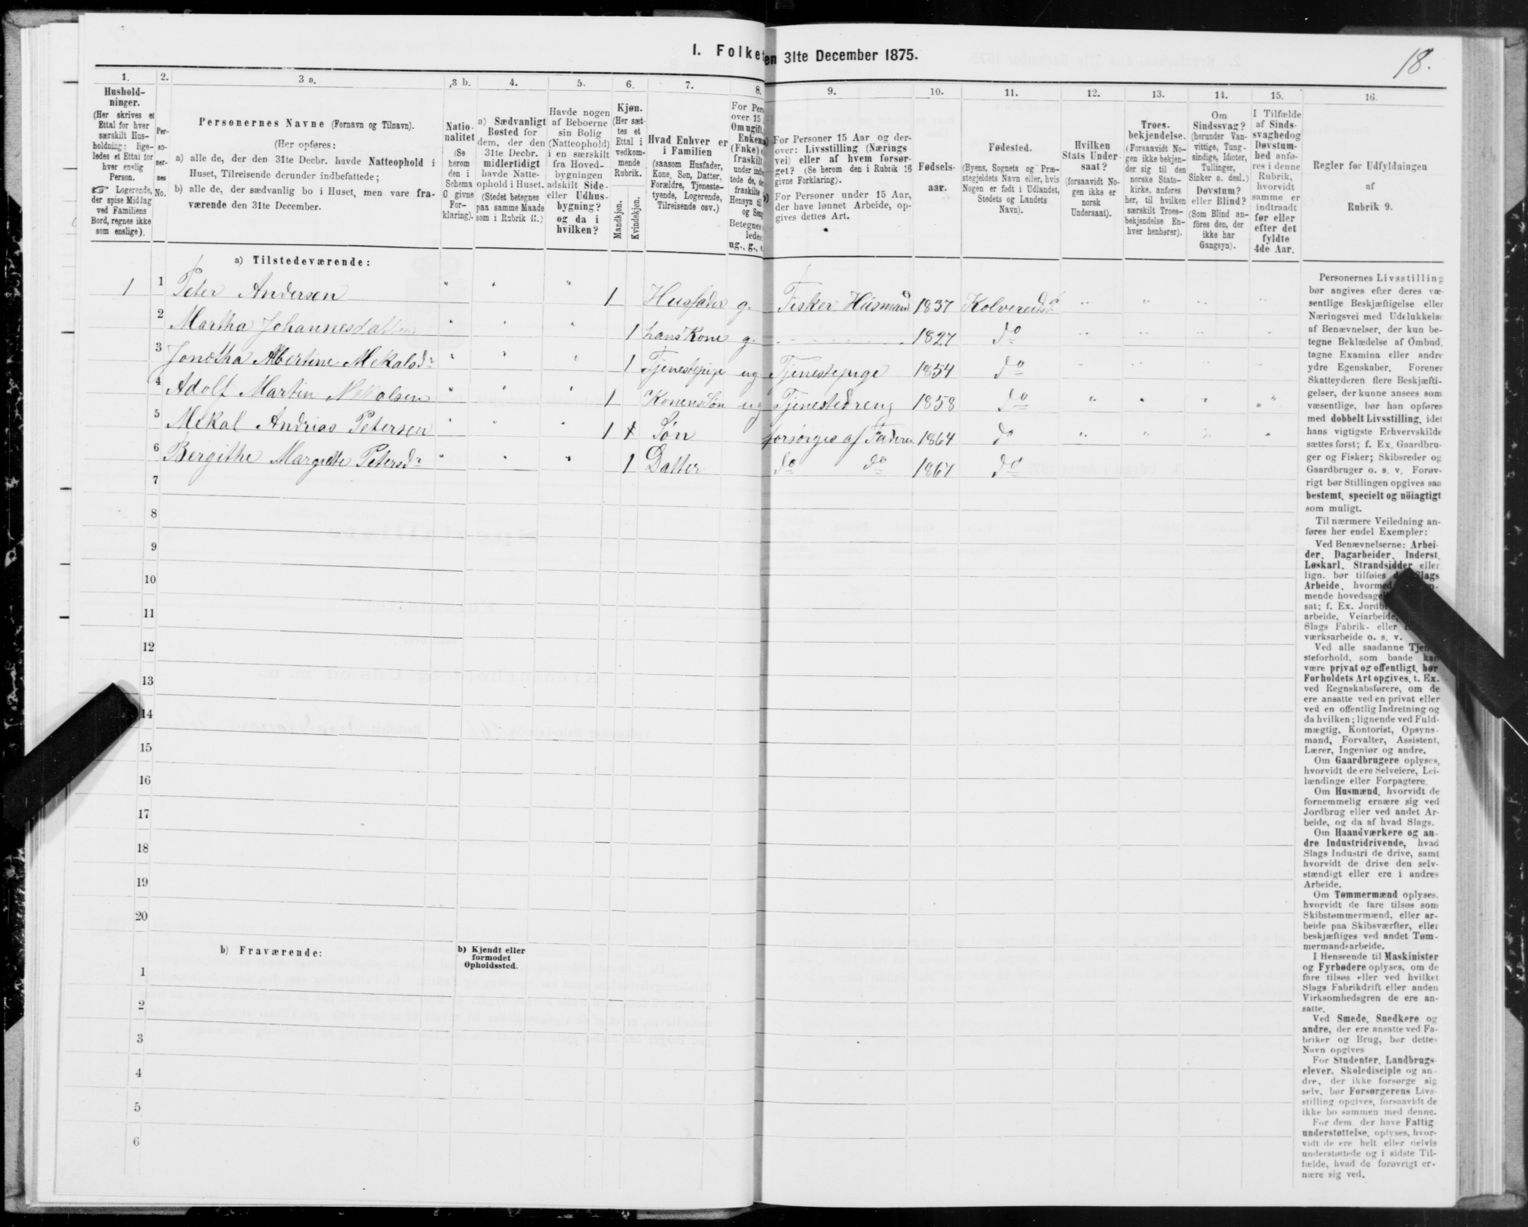 I. Folke
en 31te December 1875.
18.
1.
2.
3 a.
3 b.
4.
5.
6.
7.
8.
9.
10.
11.
12.
13.
14.
15.
16.
Hushold-
ninger.
(Her skrives et
Ettal for hver
særskilt Hus-
holdning; lige-
ledes et Ettal for
hver enslig
Person.
☞ Logerende,
der spise Middag
ved Familiens
Bord, regnes ikke
som enslige).
Per-
so-
ner-
nes
No.
Personernes Navne (Fornavn og Tilnavn).
(Her opføres:
a) alle de, der den 31te Decbr. havde Natteophold i
Huset, Tilreisende derunder indbefattede;
b) alle de, der sædvanlig bo i Huset, men vare fra-
værende den 31te December.
Natio-
nalitet
(Se
herom
den i
Schema
O givne
For-
klaring).
a) Sædvanligt
Bosted for
dem, der den
31te Decbr.
midlertidigt
havde Natte-
ophold i Huset.
(Stedet betegnes
paa samme Maade
som i Rubrik 11.)
Havde nogen
af Beboerne
sin Bolig
(Natteophold)
i en særskilt
fra Hoved-
bygningen
adskilt Side-
eller Udhus-
bygning?
og da i
hvilken?
Kjøn.
(Her sæt-
tes et
Ettal i
vedkom-
mende
Rubrik.
Mandkjøn.
Kvindekjøn.
Hvad Enhver er
i Familien
(saasom Husfader,
Kone, Søn, Datter,
Forældre, Tjeneste-
tyende, Logerende,
Tilreisende osv.)
For Per
over 15
Om ugift,
Enkem
(Fnke)
fraskilt
ug., g.,
For Personer 15 Aar og der-
over: Livsstilling (Nærings
vei) eller af hvem forsør-
get? (Se herom den i Rubrik 16
givne Forklaring).
For Personer under 15 Aar,
der have lønnet Arbeide, op-
gives dettes Art.
Fødsels-
aar.
Fødested.
(Byens, Sognets og Præ-
stegjeldets Navn eller, hvis
Nogen er født i Udlandet,
Stedets og Landets
Navn).
Hvilken
Stats Under
saat?
(forsaavidt No-
gen ikke er
norsk
Undersaat).
Troes-
bekjendelse.
(Forsaavidt No-
gen ikke bekjen-
der sig til den
norske Stats-
kirke, anføres
her, til hvilken
særskilt Troes-
bekjendelse En-
hver henhører).
Om
Sindssvag?
(herunder Van-
vittige, Tung-
sindige, Idioter,
Tullinger,
Sinker o. desl.)
Døvstum?
eller Blind?
(Som Blind an-
føres den, der
ikke har
Gangsyn).
I Tilfælde
af Sinds-
svaghed og
Døvstum-
hed anfø-
res i denne
Rubrik,
hvorvidt
samme er
indtraadt
før eller
efter det
fyldte
4de Aar.
Regler for Udfyldningen
af
Rubrik 9.
a) Tilstedeværende:
1 1 Peter Andersen " " " 1 Husfader g. Fisker, Husmand 1837 Kolvereid
2 Martha Johannesdatter " " " 1 hans Kone g. 1827 do
3 Jonetha Albertine Mekalsdr " " " 1 Tjenestepige ug Tjenestepige 1854 do
4 Adolf Martin Nikolsen " " " 1 Konens Søn ug Tjenestedreng 1858 do
5 Mekal Andrias Petersen " " " 1 Søn forsørges af Faderen 1864 do
6 Bergithe Margrethe Petersdr " " " 1 Datter do do 1867 do
7
8
9
10
11
12
13
14
15
16
17
18
19
20
b) Fraværende:
b) Kjendt eller
formodet
Opholdssted.
1
2
3
4
5
6
Personernes Livsstilling
bør angives efter deres væ-
sentlige Beskjæftigelse eller
Næringsvei med Udelukkelse
af Benævnelser, der kun be-
tegne Beklædelse af Ombud,
tagne Examina eller andre
ydre Egenskaber. Forener
Skatteyderen flere Beskjæfti-
gelser, der kunne ansees som
væsentlige, bør han opføres
med dobbelt Livsstilling, idet
hans vigtigste Erhvervskilde
sættes først; f. Ex. Gaardbru-
ger og Fisker; Skibsreder og
Gaardbruger o. s. v. Forøv-
rigt bør Stillingen opgives saa
bestemt, specielt og nöiagtigt
som muligt.
Til nærmere Veiledning an-
føres her endel Exempler:
Ved Benævnelserne: Arbei-
der, Dagarbeider, Inderst,
Løskarl, Strandsidder eller
lign. bør tilføies Slags
Arbeide, hvormed
mende hovedsage
sat; f. Ex. Jordb
arbeide, Veiarbeide,
Slags Fabrik- eller
værksarbeide o. s. v.
Ved alle saadanne Tjen
steforhold, som baade kan
være privat og offentligt, bør
Forholdets Art opgives, t. Ex.
ved Regnskabsførere, om de
ere ansatte ved en privat eller
ved en offentlig Indretning og
da hvilken; lignende ved Fuld-
mægtig, Kontorist, Opsyns-
mand, Forvalter, Assistent,
Lærer, Ingeniør og andre.
Om Gaardbrugere oplyses,
hvorvidt de ere Selveiere, Lei-
lændinge eller Forpagtere.
Om Husmænd, hvorvidt de
fornemmelig ernære sig ved
Jordbrug eller ved andet Ar-
beide, og da af hvad Slags.
Om Haandværkere og an
dre Industridrivende, hvad
Slags Industri de drive, samt
hvorvidt de drive den selv-
stændigt eller ere i andres
Arbeide.
Om Tømmermænd oplyses,
hvorvidt de fare tilsøs som
Skibstømmermænd, eller ar-
beide paa Skibsværfter, eller
beskjæftiges ved andet Tøm-
mermandsarbeide.
I Henseende til Maskinister
og Fyrbødere oplyses, om de
fare tilsøs eller ved hvilket
Slags Fabrikdrift eller anden
Virksomhedsgren de ere an-
satte.
Ved Smede, Snedkere og
andre, der ere ansatte ved Fa-
briker og Brug, bør dettes
Navn opgives
For Studenter, Landbrugs
elever, Skoledisciple og an-
dre, der ikke forsørge sig
selv, bør Forsørgerens Livs-
stilling opgives, forsaavidt de
ikke bo sammen med denne.
For dem, der have Fattig
understøttelse, oplyses, hvor-
vidt de ere helt eller delvis
understøttede og i sidste Til-
fælde, hvad de forøvrigt er-
nære sig ved.